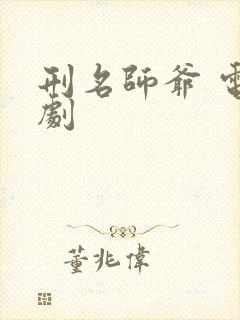 刑名師爺 電
劇
董兆偉